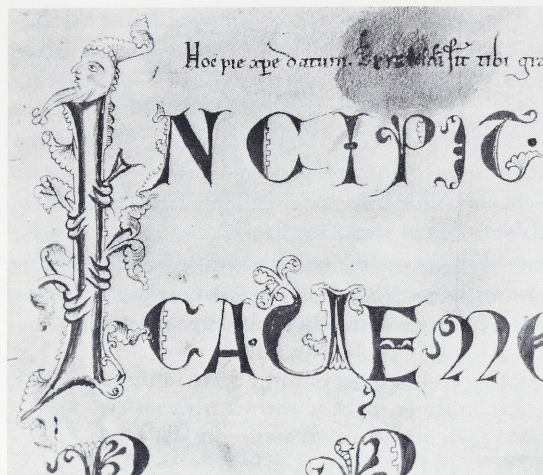 Hoc pie xpe datum. sit tibi gra
INCIPIT.
CATHEME